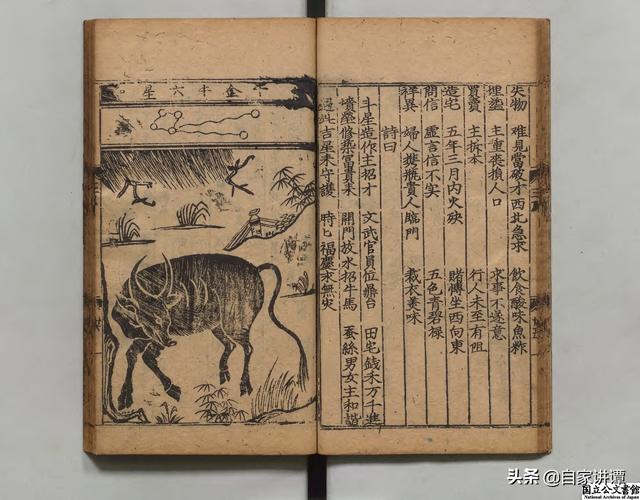 失物 难見當破才西北急求 飲食酸味魚
埋塟 主重喪損人口 求事不遂意
買賣 主折本 行人未至有阻
造宅 五年三月内火殃 坐西向東
問信 虛言信不实 五色青碧禄
祥異 婦人 貴人臨門 裁衣美味
詩曰
斗星造作主招才 文武官員位鼎台 田宅錢禾万千進
墳塋修築富貴來 開門放水招牛馬 蚕絲男女主和諧
此吉星來守護 時匕福慶永無災
金牛六星
头条 @自家讲谭
国立公文書館
National Archives of Japan